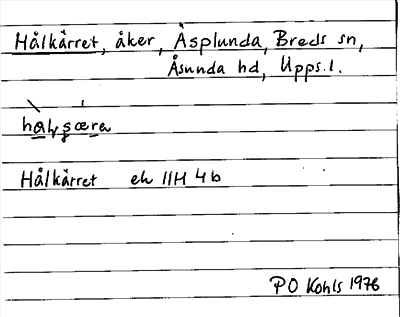 Hålkärret, åker, Åsplunda, Breds sn,
Åsunda hd, Upps.l.
Hålkärret ek 11H 4b
PO Kohls 1976